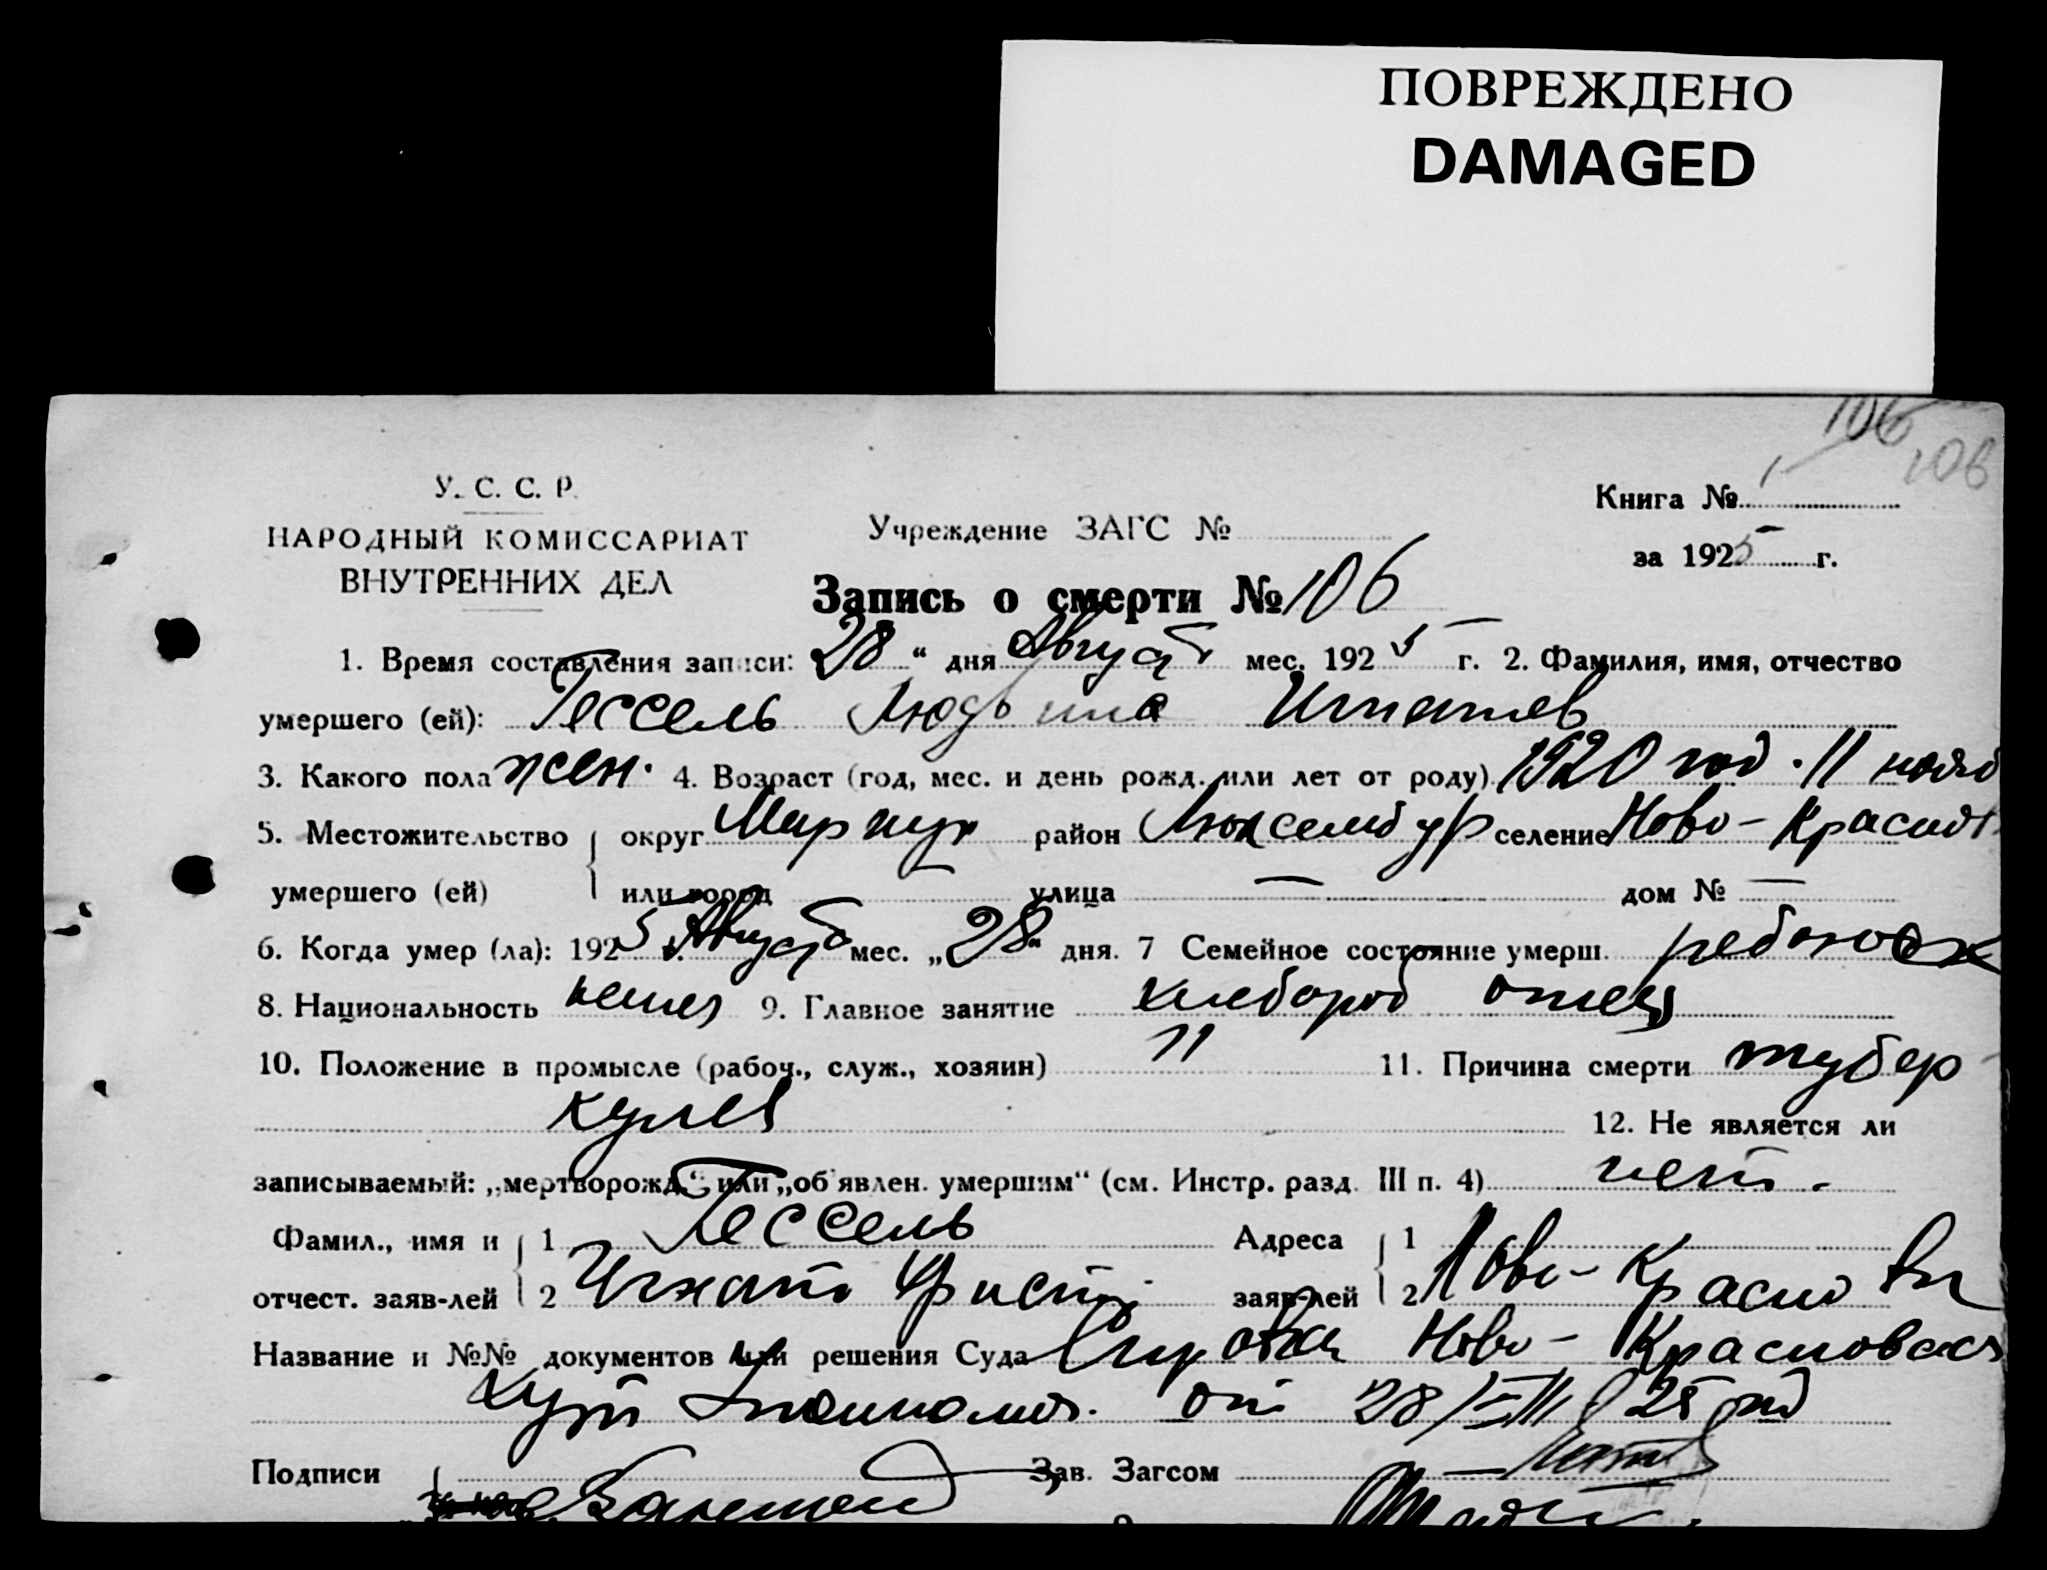 ПОВРЕЖДЕНО
DAMAGED
106
106
У. С. С. Р.
НАРОДНЫЙ КОМИССАРИАТ
ВНУТРЕННИХ ДЕЛ
Учреждение ЗАГС №
Книга № 1
за 1925 г.
Запись о смерти № 106
1. Время составления записи: 28 " дня Август мес. 1925 г. 2. Фамилия, имя, отчество
умершего (ей): Гессель Людвина Игнатев
3. Какого пола жен. 4. Возраст (год, мес. и день рожд. или лет от роду) 1920 год. 11 нояб
5. Местожительство округ Мариуп район Люксембур селение Ново-Красновк
умершего (ей) или город улица — дом № —
6. Когда умер (ла): 1925 г. Август мес. „28" дня. 7 Семейное состояние умерш. ребенок
8. Национальность немец 9. Главное занятие хлебороб отец
10. Положение в промысле (рабоч., служ., хозяин) 11 11. Причина смерти тубер-
кулез
12. Не является ли
записываемый: „мертворожд." или „об'явлен. умершим" (см. Инстр. разд. III п. 4) нет.
Фамил., имя и 1 Гессель Адреса 1
отчест. заяв-лей 2 Игнат заяв-лей 2 Ново-Красновк
Название и №№ документов или решения Суда Справка Ново-Красновская
от 28/VIII 25 год
Подписи Зав. Загсом